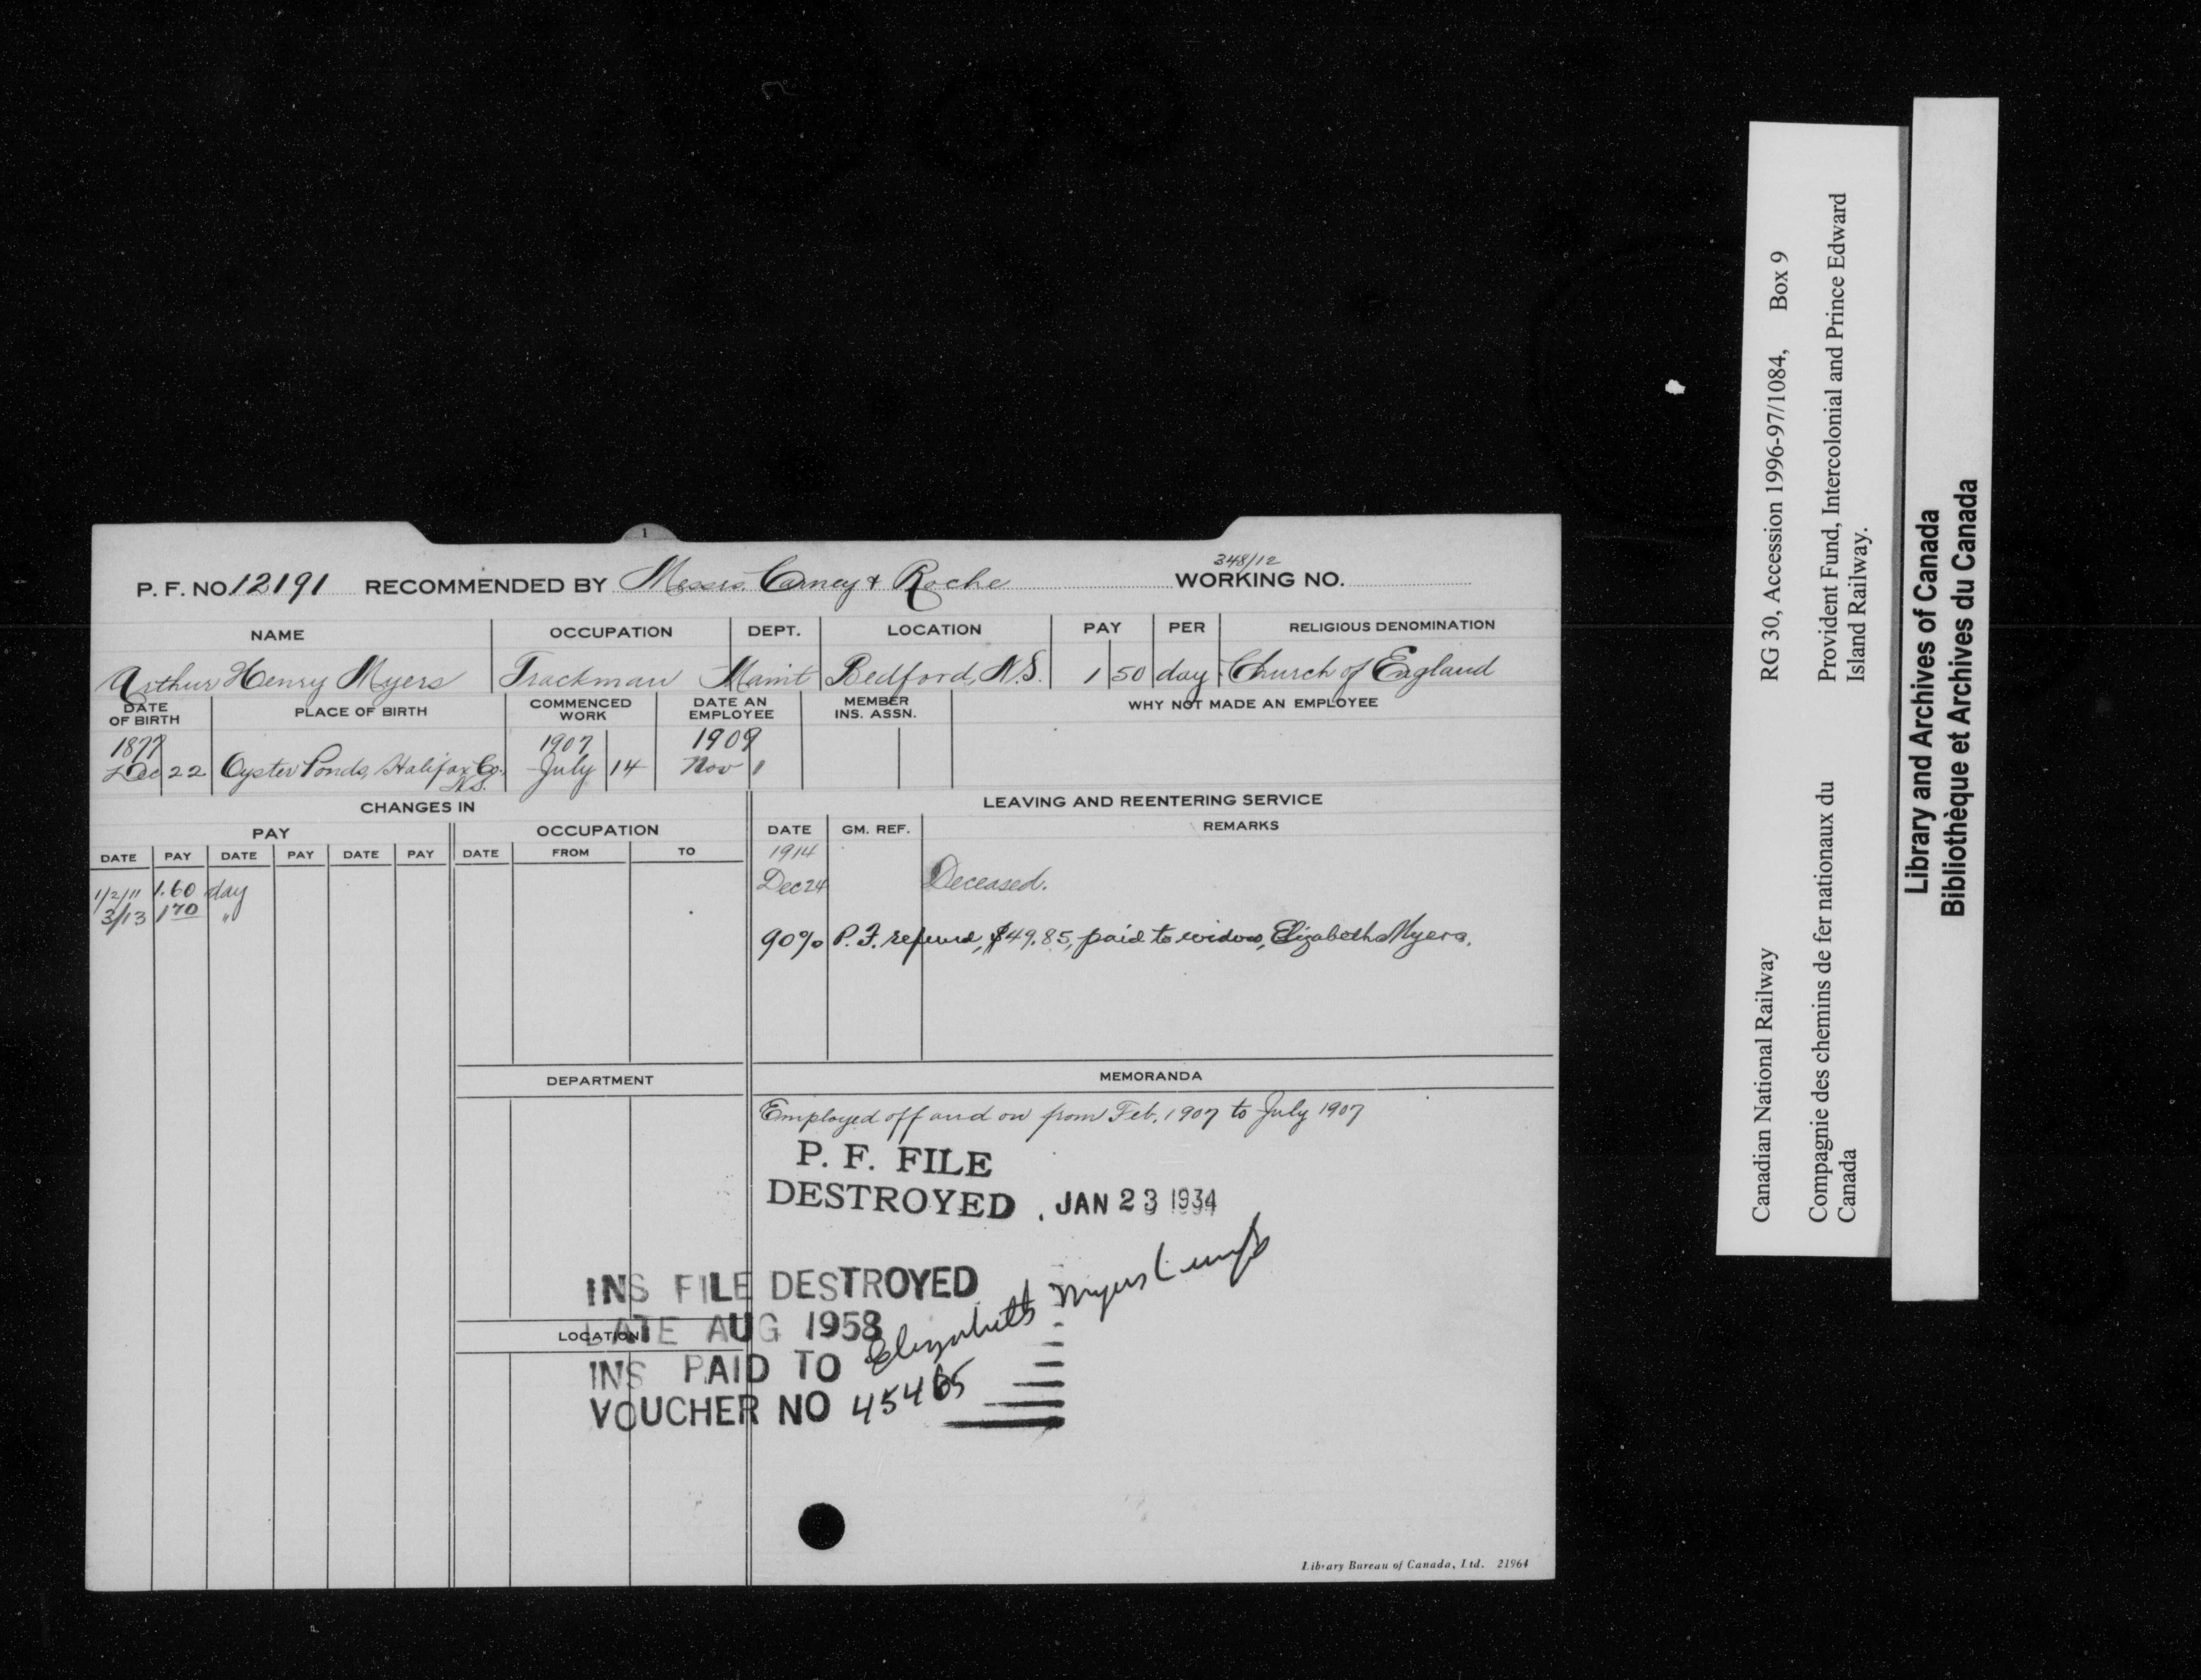 1
348/12
P. F. NO 12191 RECOMMENDED BY Messrs. Carney & Roche WORKING NO.
NAME OCCUPATION DEPT. LOCATION PAY PER RELIGIOUS DENOMINATION
Arthur Henry Myers Trackman Maint Bedford, N.S. 1 50 day Church of England
DATE OF BIRTH PLACE OF BIRTH COMMENCED WORK DATE AN EMPLOYEE MEMBER INS. ASSN. WHY NOT MADE AN EMPLOYEE
1877 1907 1909
Dec 22 Oyster Ponds, Halifax Co. N.S. July 14 Nov 1
CHANGES IN LEAVING AND REENTERING SERVICE
PAY OCCUPATION DATE GM. REF. REMARKS
DATE PAY DATE PAY DATE PAY DATE FROM TO
1914
1/2/11 1.60 day Dec 24 Deceased.
3/13 1 70 "
90% P.F. refund, $49.85, paid to widow, Elizabeth Myers.
DEPARTMENT MEMORANDA
Employed off and on from Feb. 1907 to July 1907
P. F. FILE
DESTROYED . JAN 23 1934
INS FILE DESTROYED
DATE AUG 1958
LOCATION
INS PAID TO Elizabeth Myers
VOUCHER NO 45465
Library Bureau of Canada, Ltd. 21964
Canadian National Railway RG 30, Accession 1996-97/1084, Box 9
Compagnie des chemins de fer nationaux du
Canada
Provident Fund, Intercolonial and Prince Edward
Island Railway.
Library and Archives of Canada
Bibliothèque et Archives du Canada